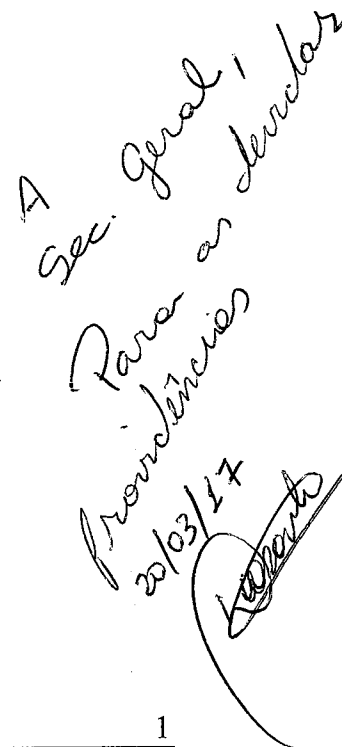 A
Sec. Geral,
Para as devidas
Providências
20/03/17
1